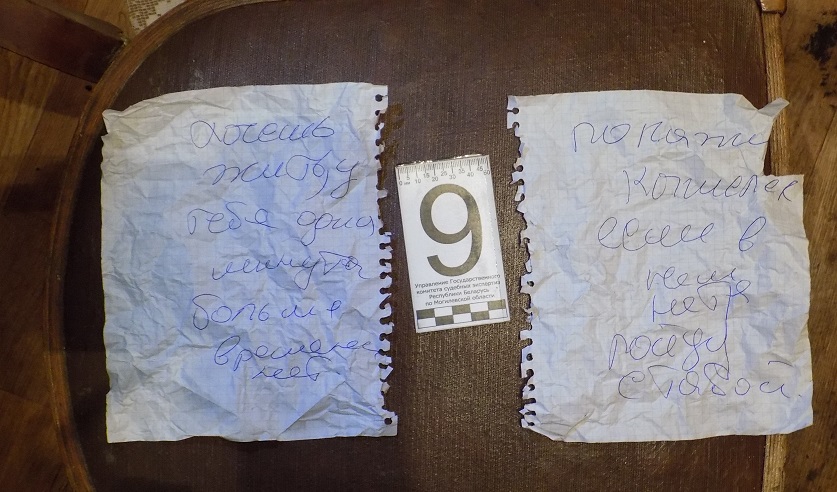 хочешь
жить у
тебя одна
минута
больше
времени
нет
0 мм 5 10 15 20 25 30 35 40 45 50
9
Управление Государственного
комитета судебных экспертиз
Республики Беларусь
по Могилевской области
покажи
кошелек
если в
нем
нет
пойду
с тобой.